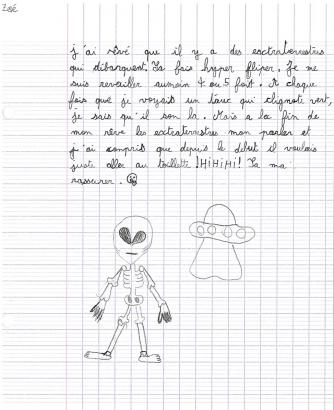 Zoé
j'ai rêvé que il y a des exctraterrestres
qui débarquent. Sa fais hypper fliper. Je me
suis reveiller aumoin 4 ou 5 foit. A chaque
fois que je voyais un truc qui clignote vert,
je sais qu'il son la. Mais a la fin de
mon rêve les extraterrestres mon parler et
j'ai compris que depuis le debut il voulais
juste aller au toillette !HiHiHi! Sa ma
rassurer.